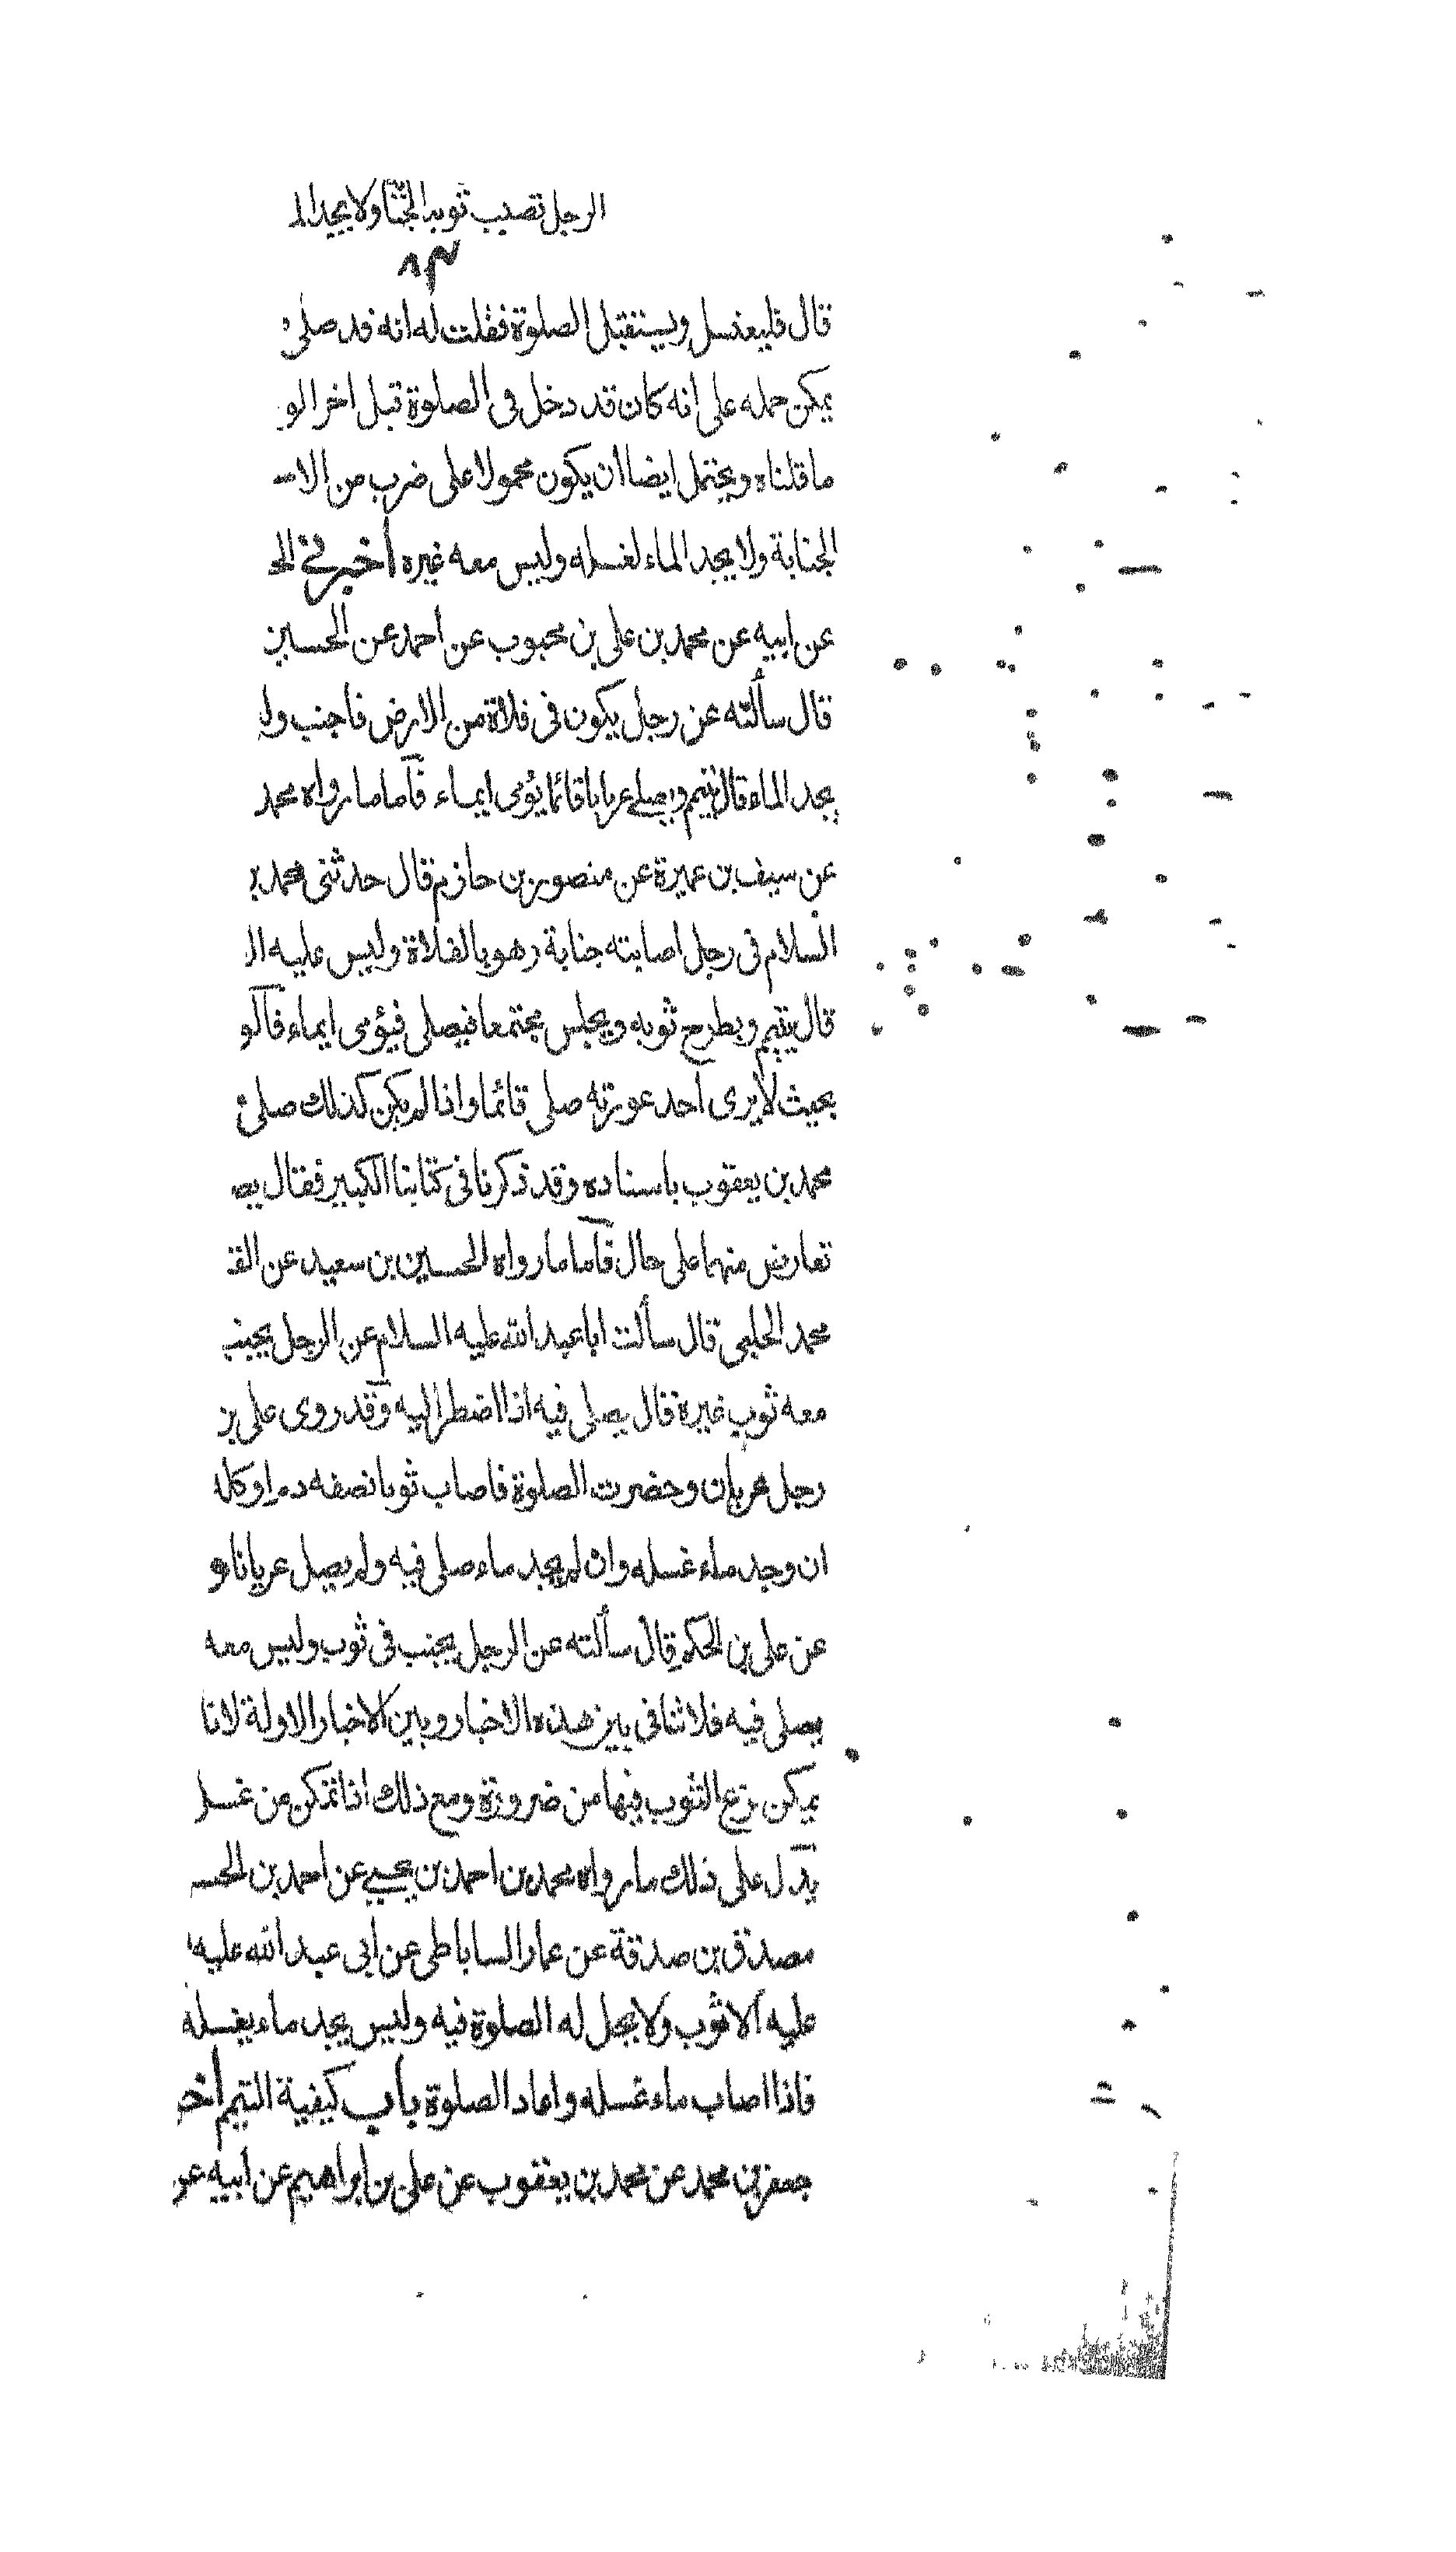 الرجل تصيب ثوبه الجنابة ولا يجد الم
٨٣
قال فليغتسل ويستقبل الصلوة فقلت له انه قد صلى
يمكن حمله على انه كان قد دخل فى الصلوة قبل اخر الو
ما قلناه ويحتمل ايضا ان يكون محمولا على ضرب من الاس
الجنابة ولا يجد الماء لغسله وليس معه غيره أخبرني الح
عن ابيه عن محمد بن على بن محبوب عن احمد عن الحسين
قال سألته عن رجل يكون فى فلاة من الارض فاجنب ول
يجد الماء قال يتيمم ويصلي عريانا قائما يؤمى ايماء فاما ما رواه محمد
عن سيف بن عميرة عن منصور بن حازم قال حدثنى محمد بن
السلام فى رجل اصابته جنابة وهو بالفلاة وليس عليه ال
قال يتيمم ويطرح ثوبه ويجلس مجتمعا فيصلى فيؤمى ايماء فالو
بحيث لا يرى احد عورته صلى قائما واذا لم يكن كذلك صلى
محمد بن يعقوب باسناده وقد ذكرنا فى كتابنا الكبير فقال يص
تعارض منهما على حال فاما ما رواه الحسين بن سعيد عن الق
محمد الحلبى قال سألت ابا عبد الله عليه السلام عن الرجل يجنب
معه ثوب غيره قال يصلى فيه اذا اضطر اليه وقد روى على بن
رجل عريان وحضرت الصلوة فاصاب ثوبا نصفه دم او كله
ان وجد ماء غسله وان لم يجد ماء صلى فيه ولم يصل عريانا و
عن على بن الحكم قال سألته عن الرجل يجنب فى ثوب وليس معه
يصلى فيه فلا تنافى بين هذه الاخبار وبين الاخبار الاولة لانا
يمكن نزع الثوب فيها من ضرورة ومع ذلك اذا تمكن من غسل
يدل على ذلك ما رواه محمد بن احمد بن يحيى عن احمد بن الحس
مصدق بن صدقة عن عمار الساباطى عن ابى عبد الله عليه ا
عليه الا ثوب ولا يحل له الصلوة فيه وليس يجد ماء يغسله
فاذا اصاب ماء غسله واعاد الصلوة باب كيفية التيمم أخ
جعفر بن محمد عن محمد بن يعقوب عن على بن ابراهيم عن ابيه عن